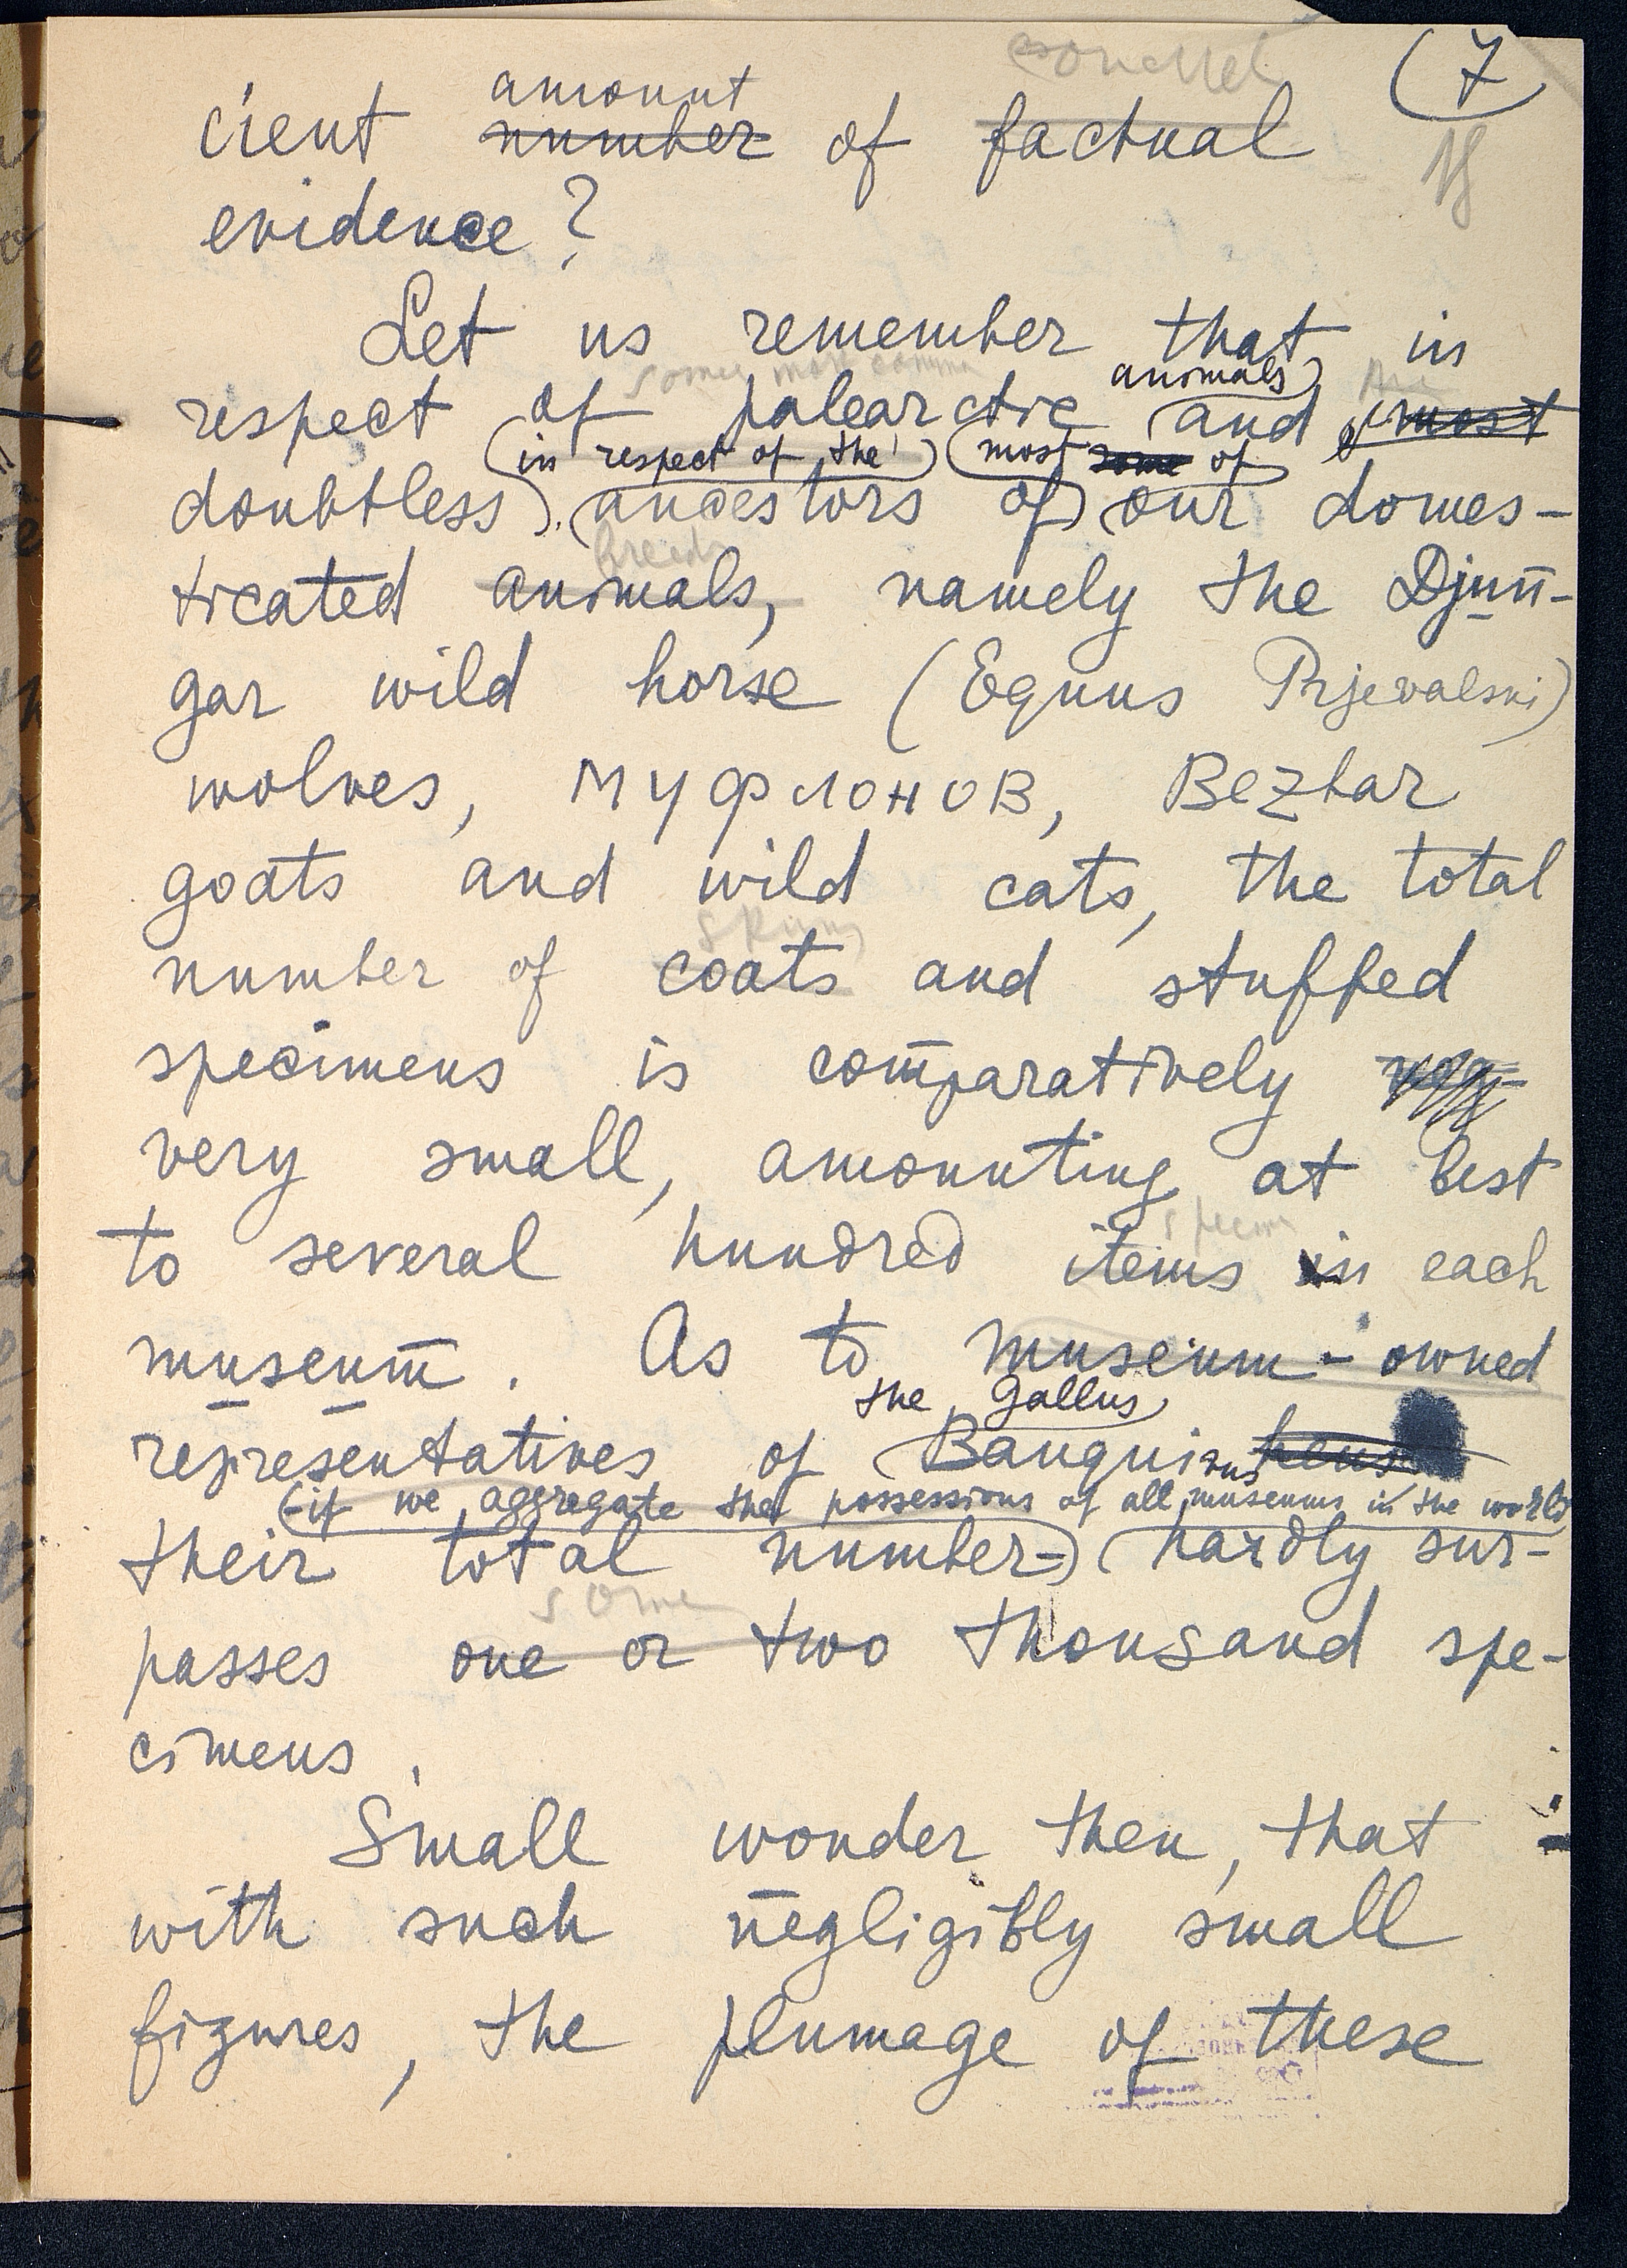 (7
amount
cient number of factual
evidence?
Let us remember that in
animals
respect of palearctic and most
in respect of the most some of
doubtless ancestors of our domes-
breeds
ticated animals, namely the Djun-
gar wild horse (Equus Prjevalski)
wolves, муфлонов, Bezhar
goats and wild cats, the total
skins
number of coats and stuffed
specimens is comparatively
very small, amounting at best
specim
to several hundred items in each
museum. As to museum-owned
the Gallus
representatives of Banquivus hens
(-if we aggregate the possessions of all museums in the world
their total number-) hardly sur-
some
passes one or two thousand spe-
cimens.
Small wonder then, that
with such negligibly small
figures, the plumage of these